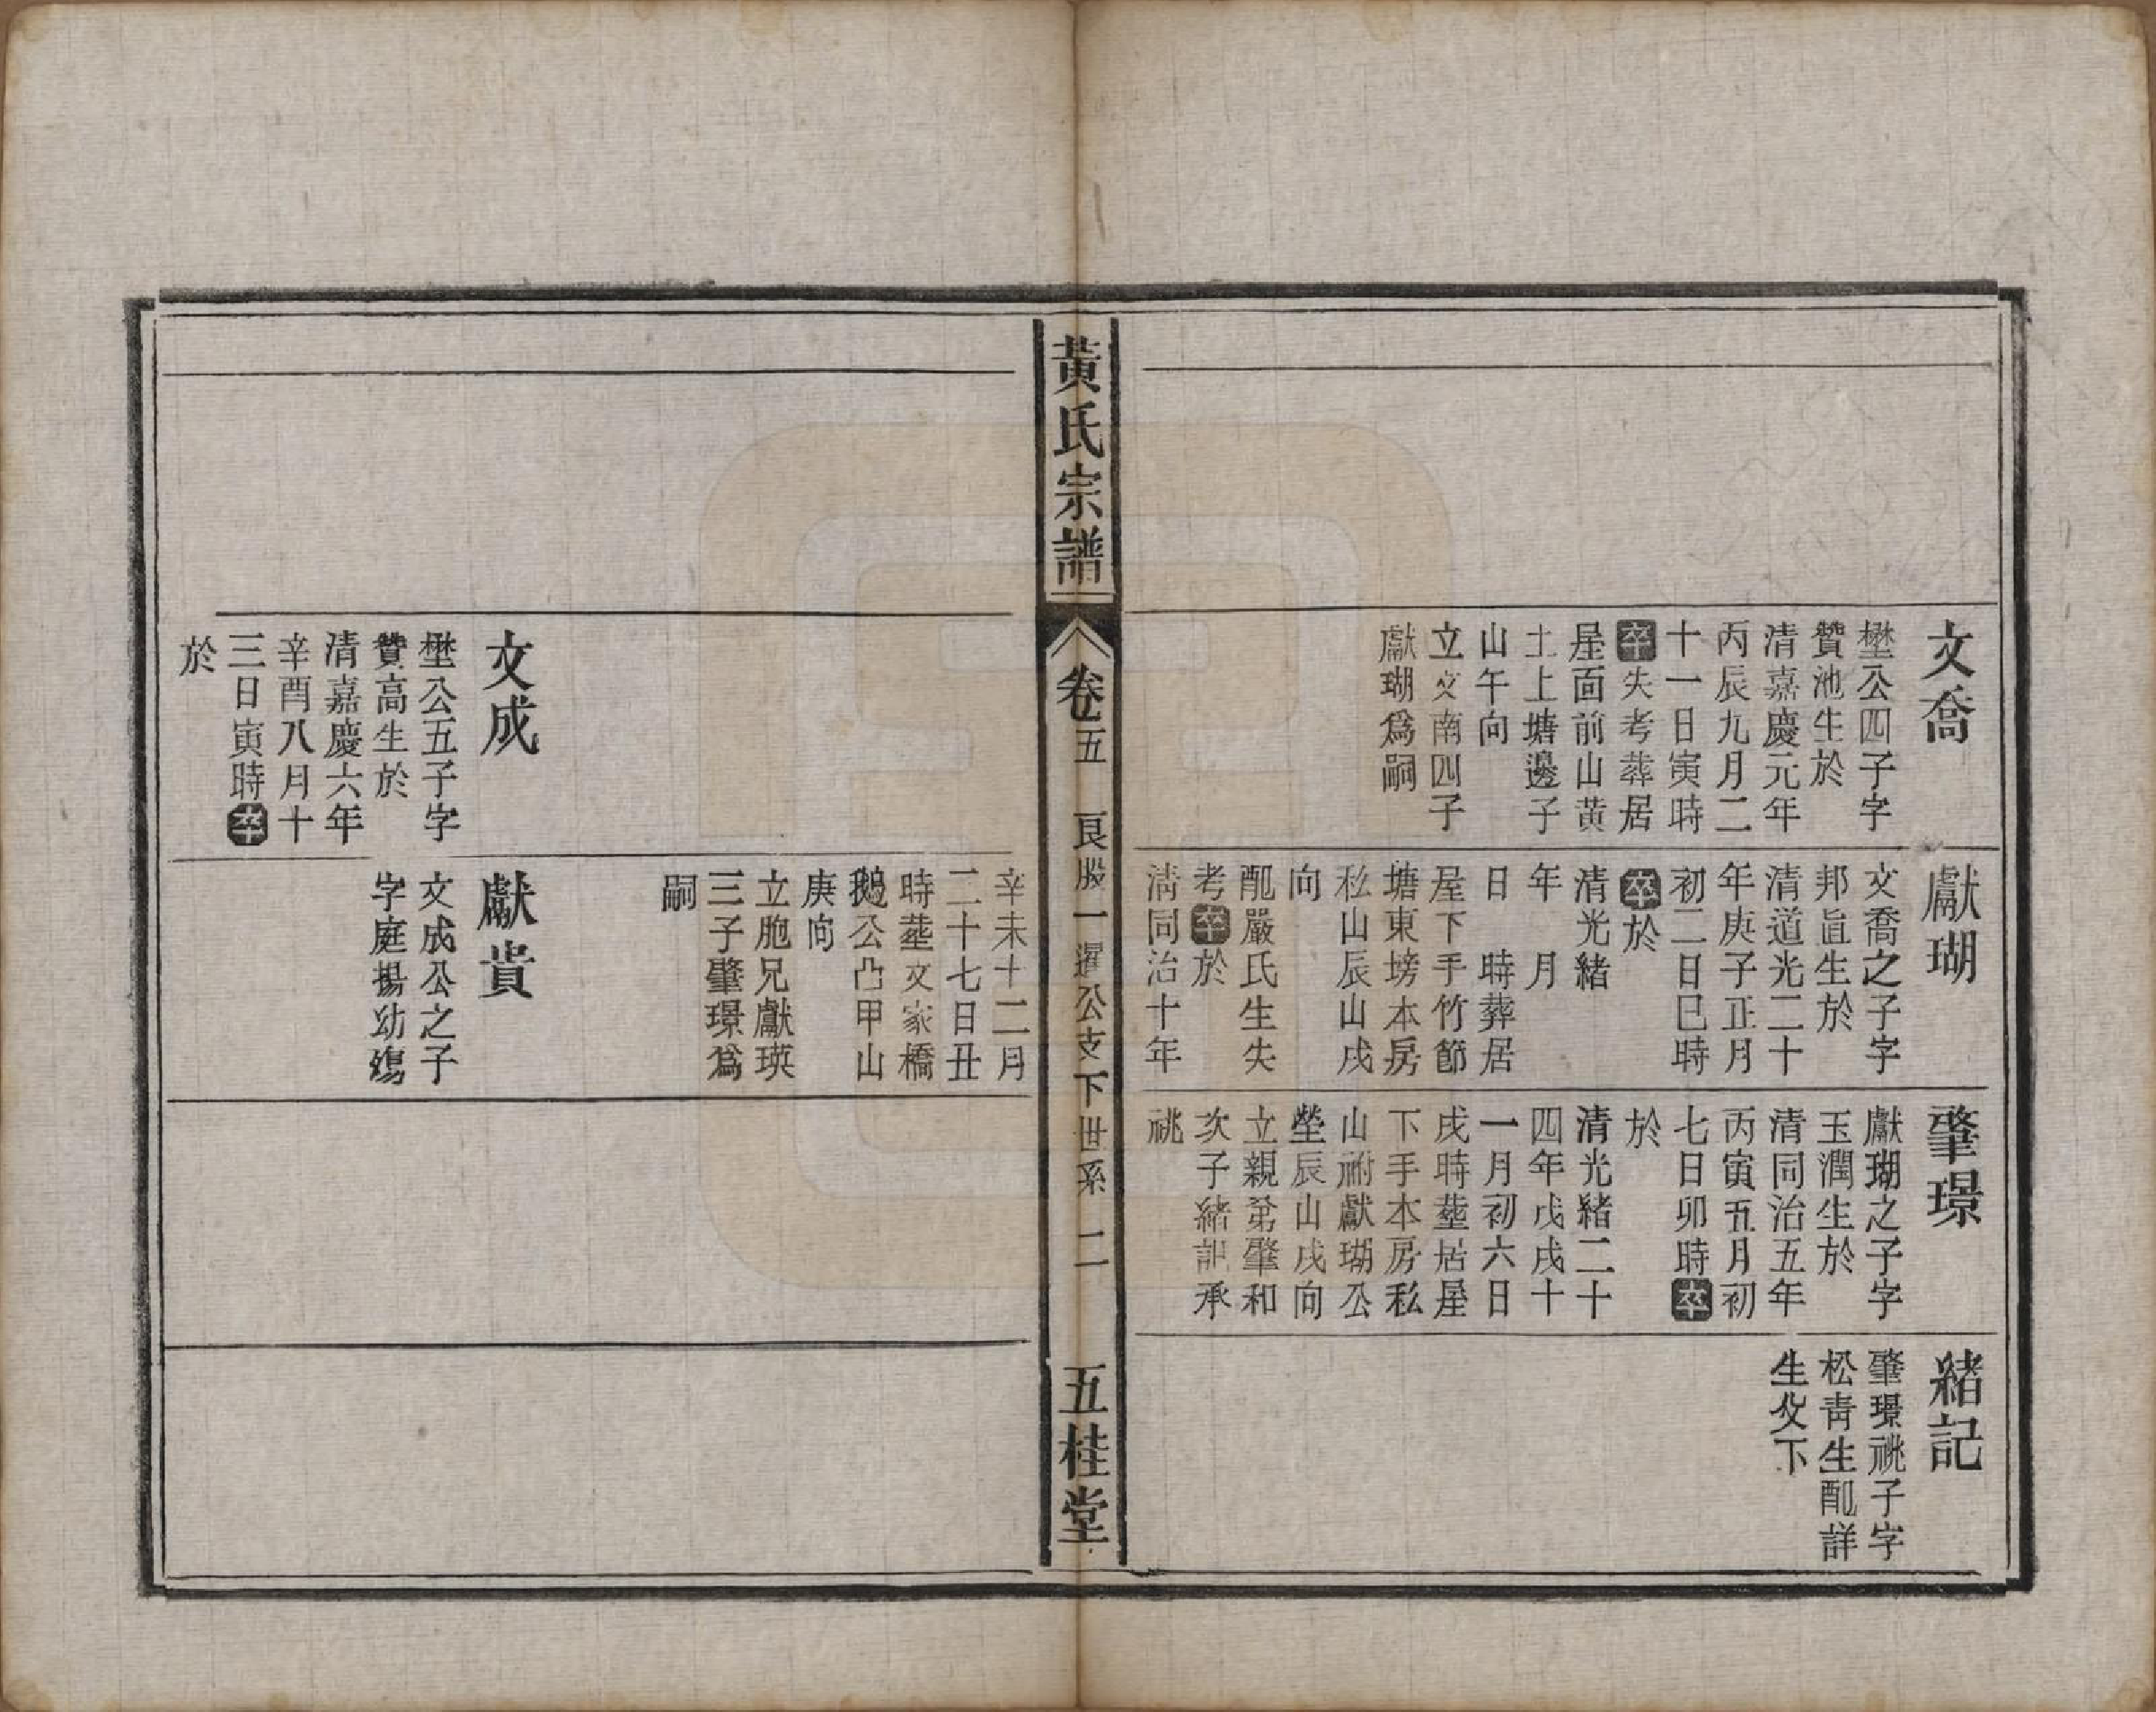 文喬
壄公四子字
贊池生於
清嘉慶元年
丙辰九月二
十一日寅時
卒失考葬居
屋面前山黄
土上塘邊子
山午向
立文南四子
獻瑚爲嗣
獻瑚
文喬之子字
邦㫖生於
清道光二十
年庚子正月
初二日巳時
卒於
清光緒
年　月
日　時葬居
屋下手竹節
塘東塝本房
私山辰山戌
向
配嚴氏生失
考卒於
清同治十年
肇璟
獻瑚之子字
玉潤生於
清同治五年
丙寅五月初
七日卯時卒
於
清光緒二十
四年戊戌十
一月初六日
戌時塟居屋
下手本房私
山祔獻瑚公
塋辰山戌向
立親弟肇和
次子緒記承
祧
緒記
肇璟祧子字
松青生配詳
生父下
黃氏宗譜
卷五
良股一暹公支下世系　二
五桂堂
辛未十二月
二十七日丑
時塟文家橋
鵝公凸甲山
庚向
立胞兄獻瑛
三子肇璟爲
嗣
文成
壄公五子字
贊高生於
清嘉慶六年
辛酉八月十
三日寅時卒
於
獻貴
文成公之子
字庭揚幼殤